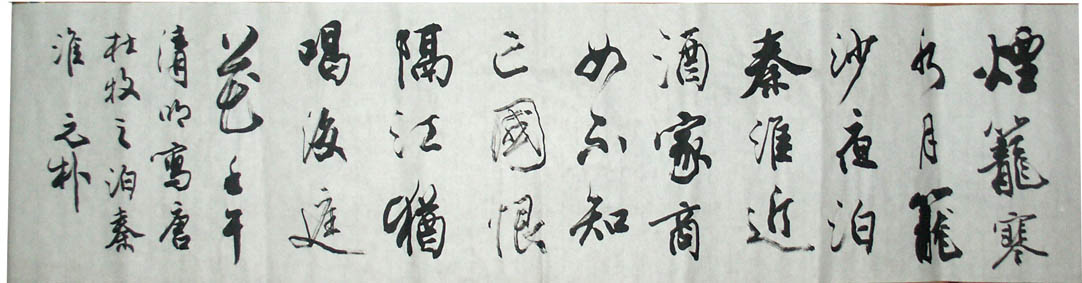 煙籠寒
水月籠
沙夜泊
秦淮近
酒家商
女不知
亡國恨
隔江猶
唱後庭
花 壬午
清明寫唐
杜牧之泊秦
淮 元朴